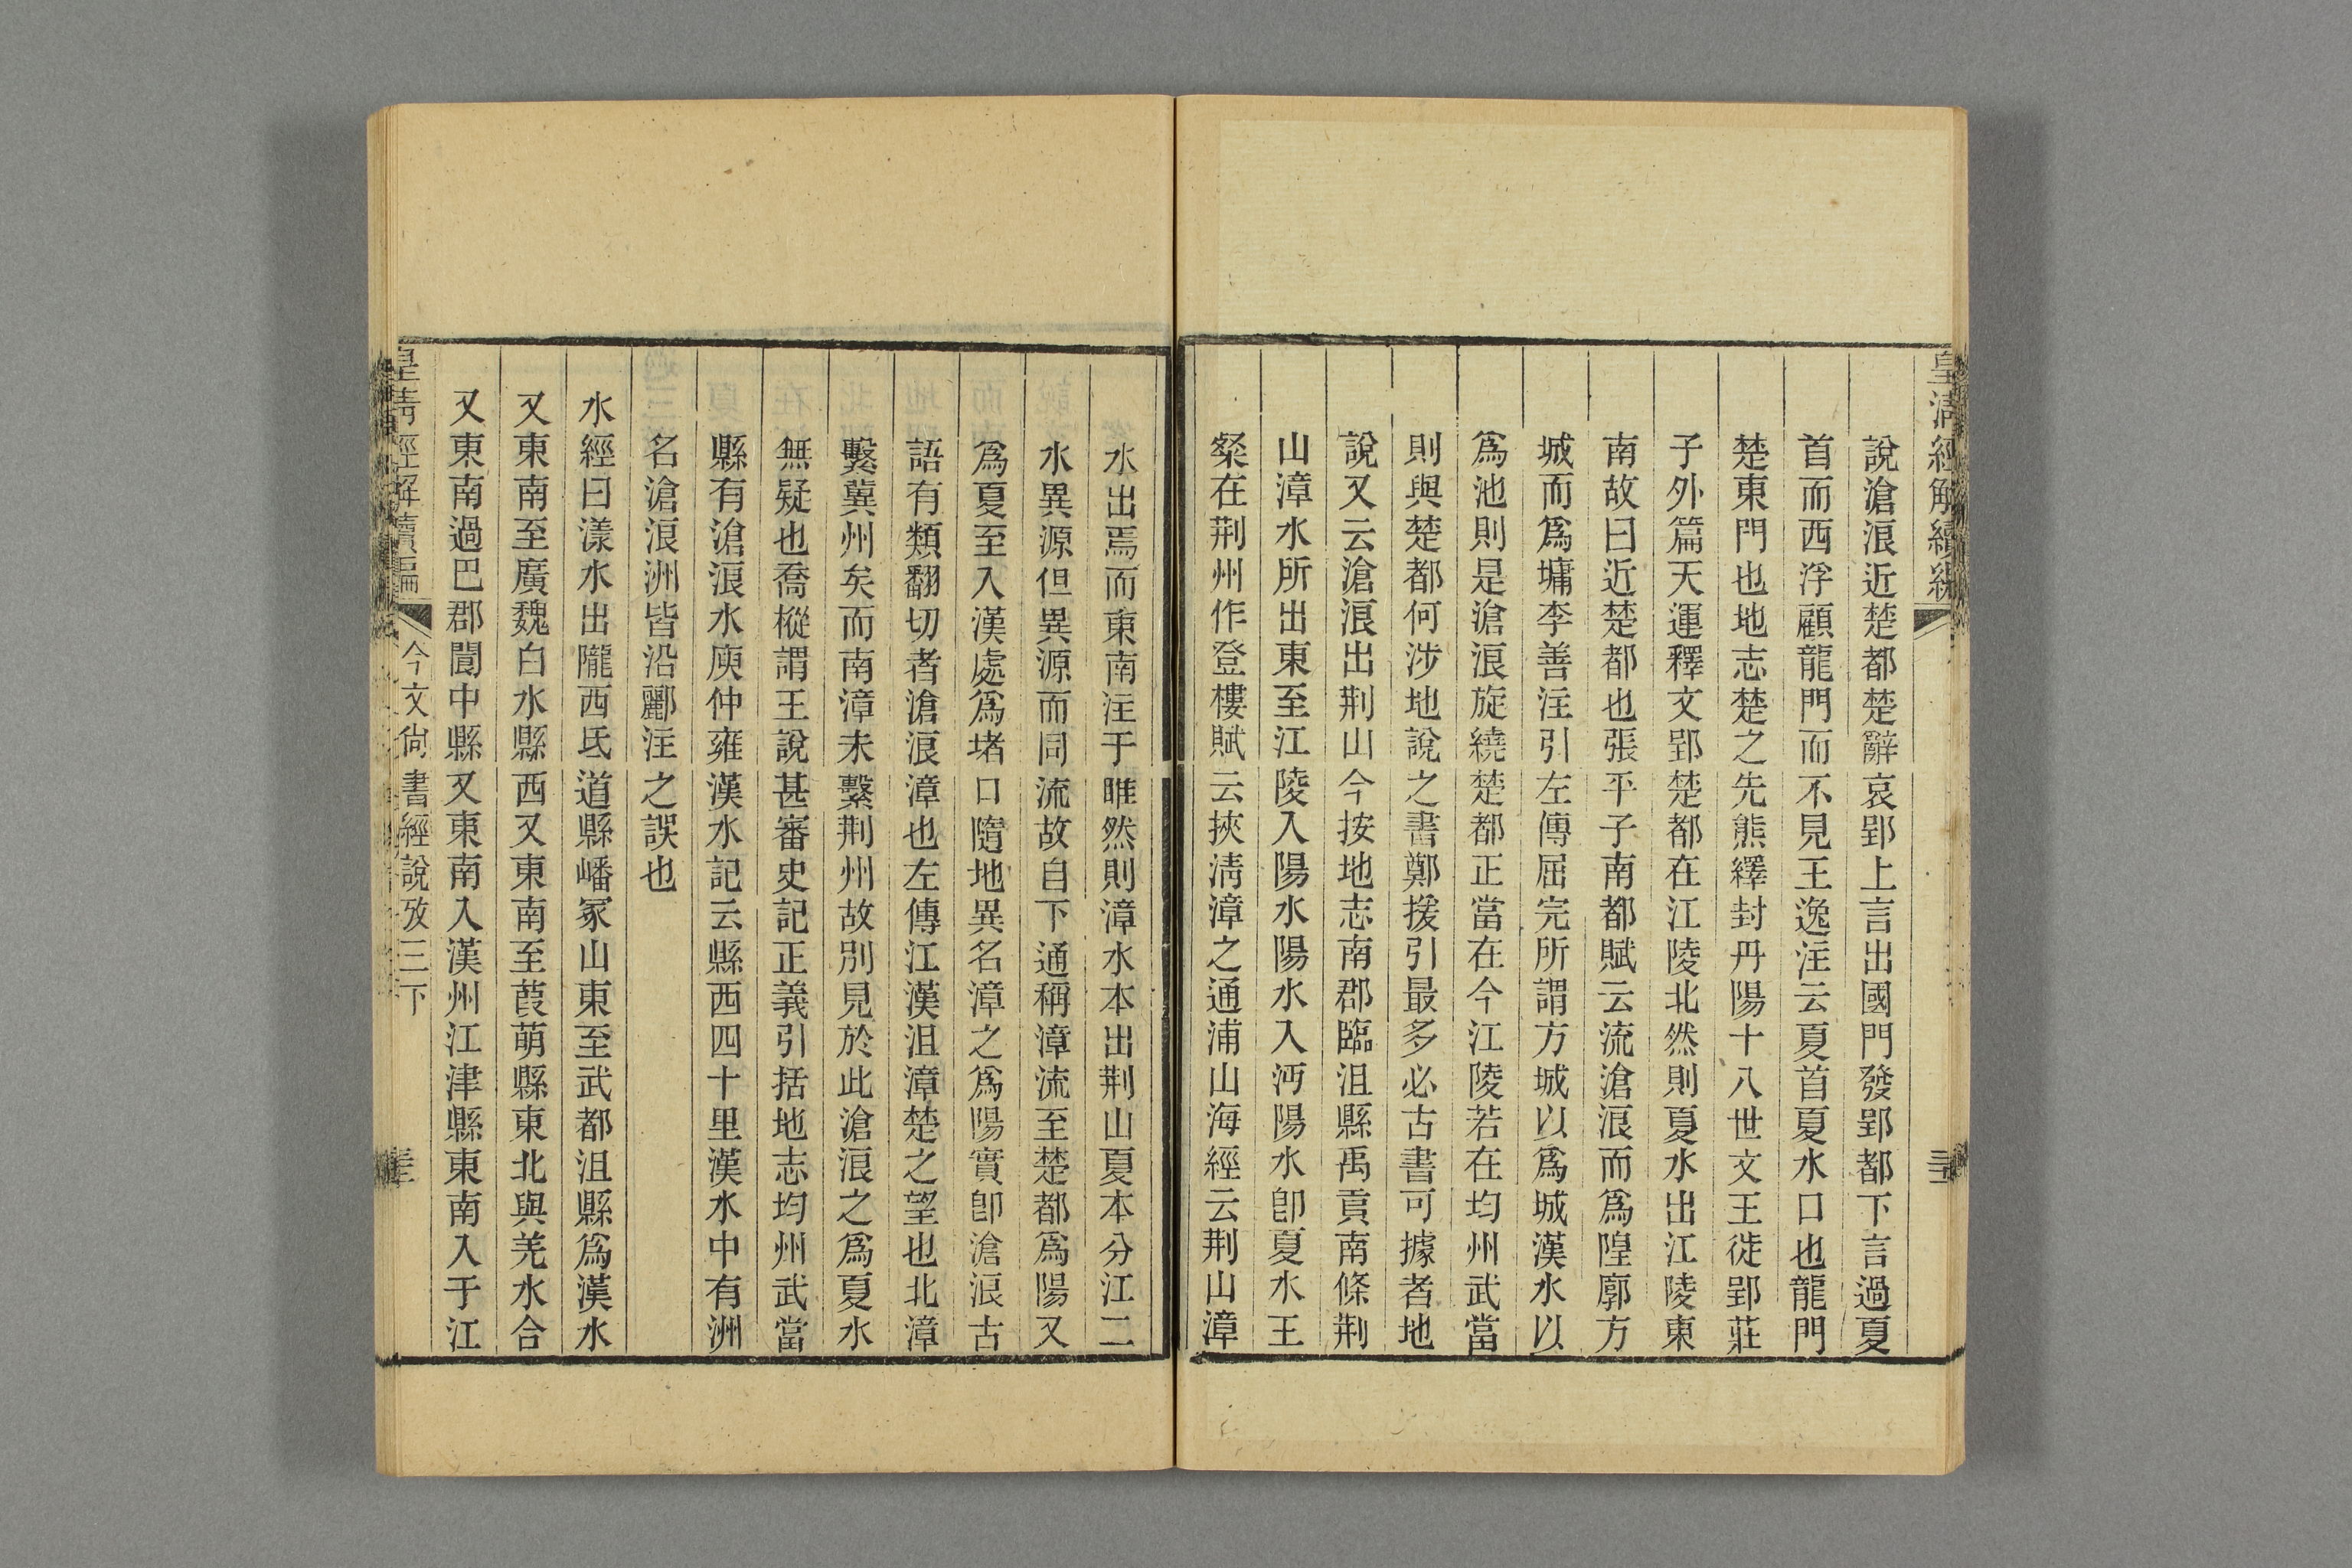 皇清經解續編
說滄浪近楚都楚辭哀郢上言出國門發郢都下言過夏
首而西浮顧龍門而不見王逸注云夏首夏水口也龍門
楚東門也地志楚之先熊繹封丹陽十八世文王徙郢莊
子外篇天運釋文郢楚都在江陵北然則夏水出江陵東
南故曰近楚都也張平子南都賦云流滄浪而爲隍廓方
城而爲墉李善注引左傳屈完所謂方城以爲城漢水以
爲池則是滄浪旋繞楚都正當在今江陵若在均州武當
則與楚都何涉地說之書鄭援引最多必古書可據者地
說又云滄浪出荆山今按地志南郡臨沮縣禹貢南條荆
山漳水所出東至江陵入陽水陽水入沔陽水卽夏水王
粲在荆州作登樓賦云挾淸漳之通浦山海經云荆山漳
水出焉而東南注于睢然則漳水本出荆山夏本分江二
水異源但異源而同流故自下通稱漳流至楚都爲陽又
爲夏至入漢處爲堵口隨地異名漳之爲陽實卽滄浪古
語有類翻切者滄浪漳也左傳江漢沮漳楚之望也北漳
繫冀州矣而南漳未繫荆州故別見於此滄浪之爲夏水
無疑也喬樅謂王說甚審史記正義引括地志均州武當
縣有滄浪水庾仲雍漢水記云縣西四十里漢水中有洲
名滄浪洲皆沿酈注之誤也
水經曰漾水出隴西氐道縣嶓冢山東至武都沮縣爲漢水
又東南至廣魏白水縣西又東南至葭萌縣東北與羌水合
又東南過巴郡閬中縣又東南入漢州江津縣東南入于江
皇清經解續編
今文尙書經說攷三下